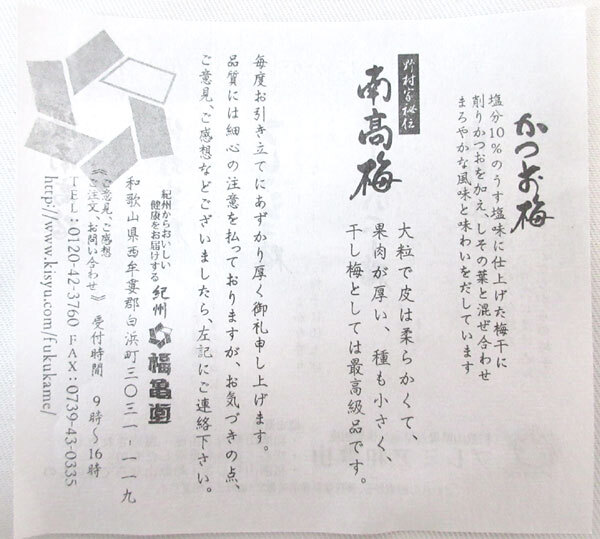 かつお梅
塩分10%のうす塩味に仕上げた梅干に
削りかつおを加え、しその葉と混ぜ合わせ
まろやかな風味と味わいをだしています
野村家秘伝
南高梅
大粒で皮は柔らかくて、
果肉が厚い、種も小さく、
干し梅としては最高級品です。
毎度お引き立てにあずかり厚く御礼申し上げます。
品質には細心の注意を払っておりますが、お気づきの点、
ご意見、ご感想などございましたら、左記にご連絡下さい。
紀州からおいしい
健康をお届けする
紀州
福亀堂
和歌山県西牟婁郡白浜町三〇三一-一一九
《ご意見、ご感想
ご注文、お問い合わせ》 受付時間 9時～16時
TEL:0120-42-3760 FAX:0739-43-0335
http://www.kisyu.com/fukukame/